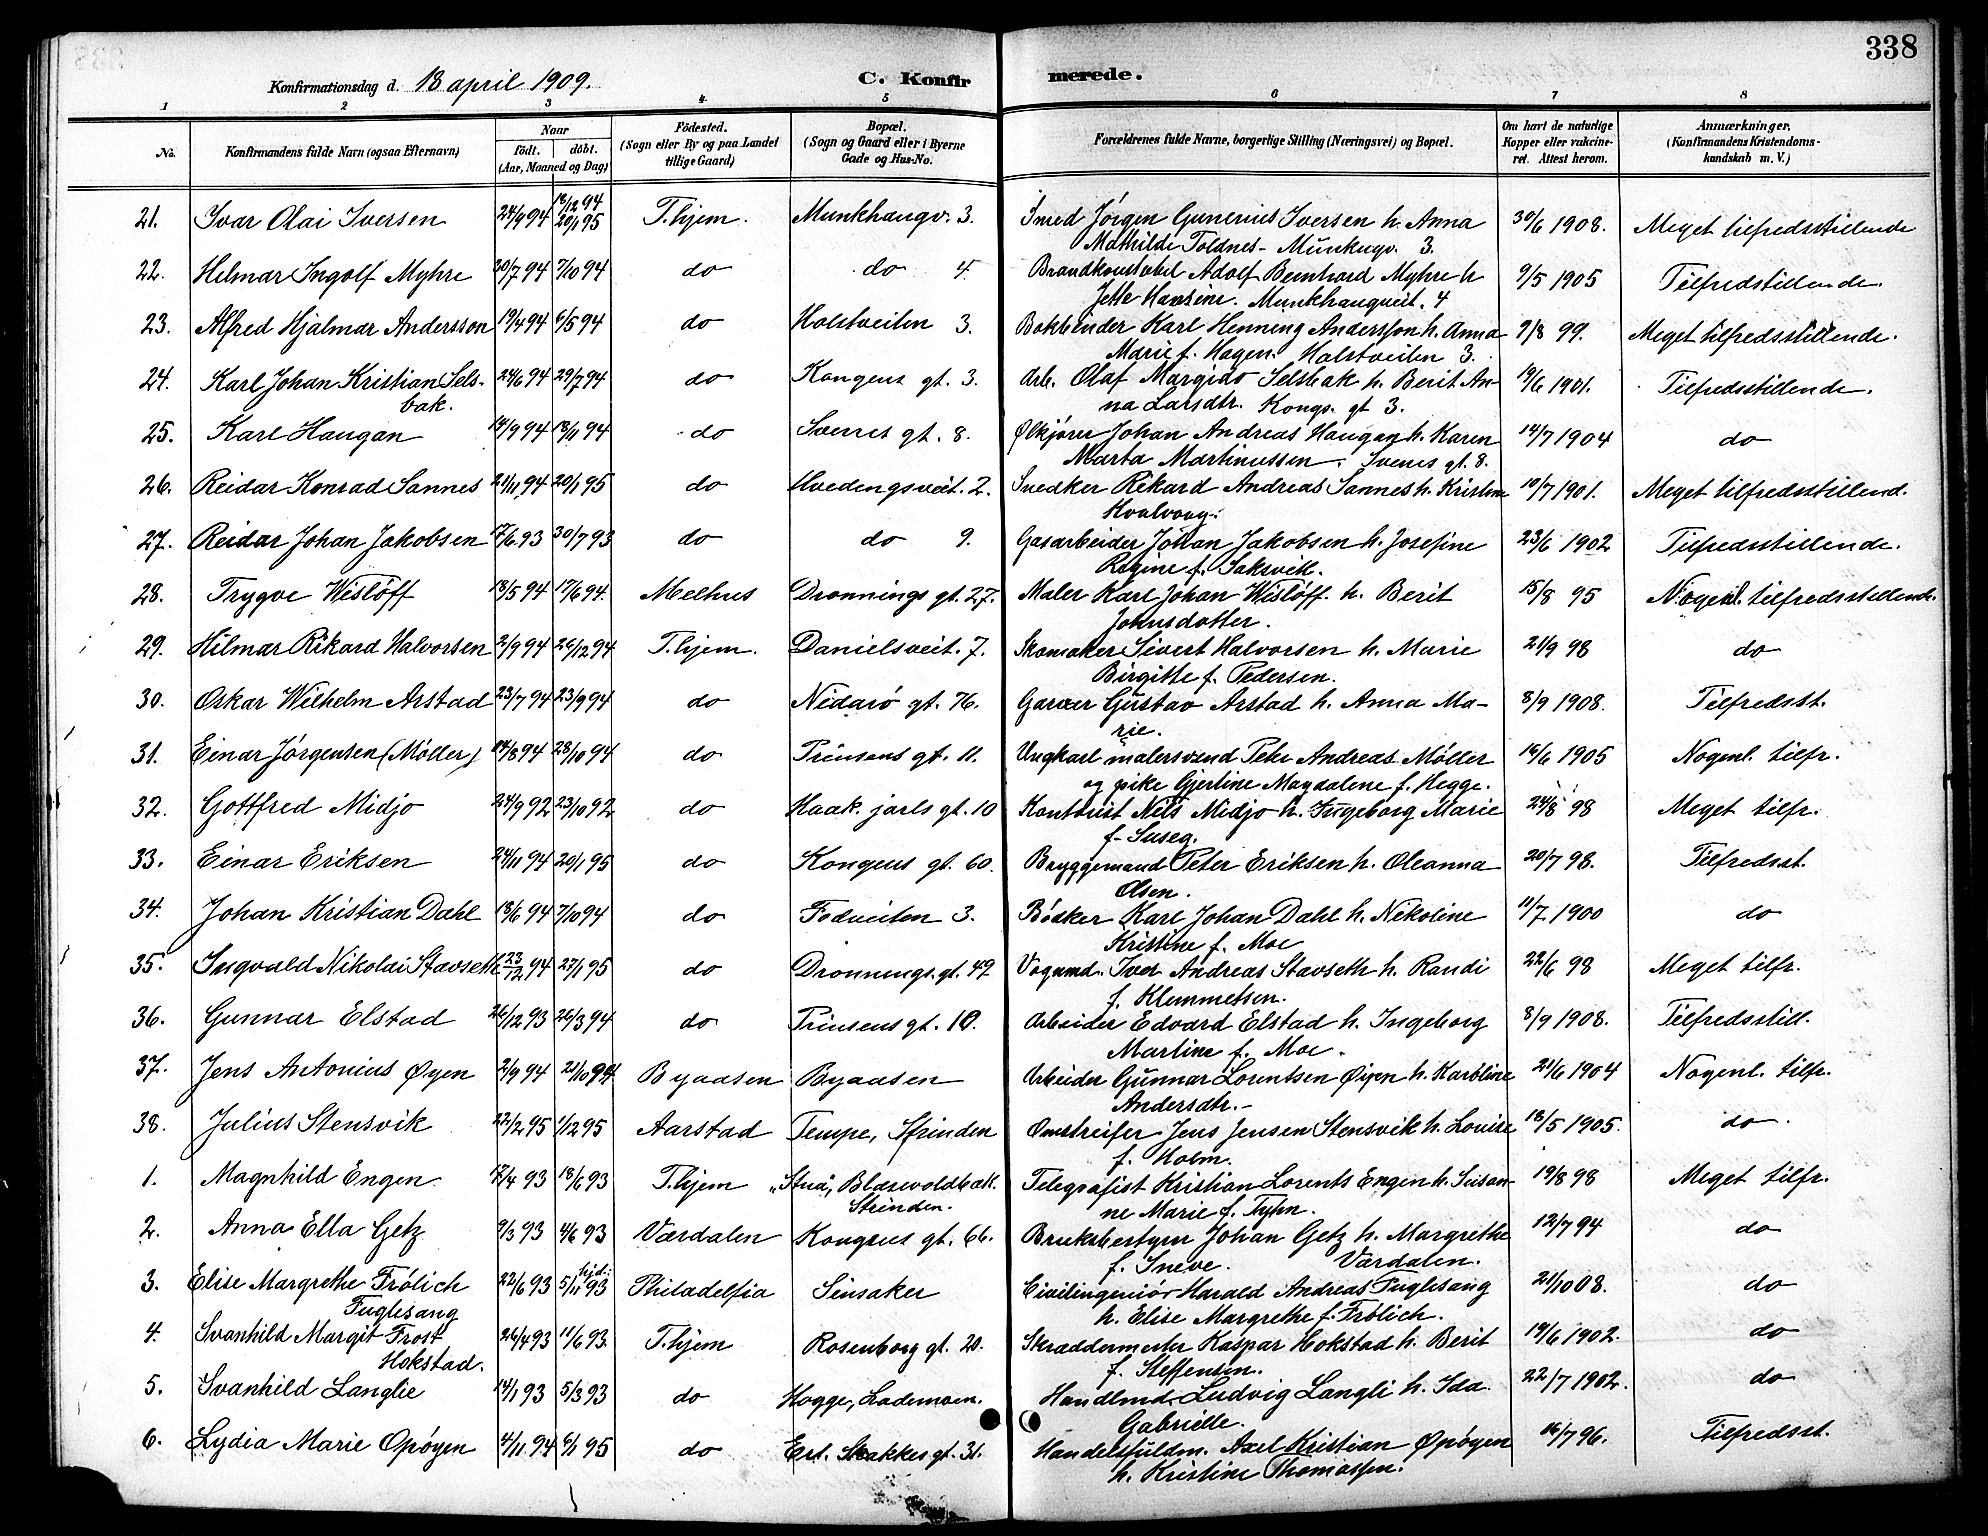 338
Konfirmationsdag d. 18 april 1909. C. Konfirmerede.
1 2 3 4 5 6 7 8
No. Konfirmandens fulde Navn (ogsaa Efternavn) Naar födt. döbt. (Aar, Maaned og Dag) Födested. (Sogn eller By og paa Landet tillige Gaard) Bopæl. (Sogn og Gaard eller i Byerne Gade og Hus-No. Forældrenes fulde Navne, borgerlige Stilling (Næringsvei) og Bopæl. Om havt de naturlige Kopper eller vakcineret. Attest herom. Anmærkninger. (Konfirmandens Kristendomskundskab m. V.)
21. Ivar Olai Iversen 24/9 94 18/12 94 20/1 95 T.hjem. Munkhaugv. 3. Smed Jörgen Gunerius Iversen h. Anna 30/6 1908. Meget tilfredsstillende
Mathilde Toldnes - Munkugv. 3.
22. Hilmar Ingolf Myhre 30/7 94 7/10 94 do do 4. Brandkonstabel Adolf Bernhard Myhre h 9/5 1905 Tilfredstillende.
Jette Hansine. Munkhaugveit. 4
23. Alfred Hjalmar Andersson 19/4 94 6/5 94 do Holstveiten 3. Bokbinder Karl Henning Andersson h. Anna 9/8 99. Meget tilfredsstillende.
Marie f. Hagen. Holstveiten 3.
24. Karl Johan Kristian Sels- 24/6 94 29/7 94 do Kongens gt. 3. Arb. Olaf Margido Selsbak h. Berit An- 19/6 1901. Tilfredsstillende.
bak. na Larsdtr. Kongs. gt 3.
25. Karl Haugan 14/9 94 18/11 94 do Sverres gt. 8. Ølkjører Johan Andreas Haugan h. Karen 14/7 1904 do
Marta Martinussen. Sverres gt. 8.
26. Reidar Konrad Sannes 21/11 94 20/1 95 do Hvedingsveit. 2. Snedker Rikard Andreas Sannes h. Kristine 10/7 1901. Meget tilfredsstillend.
Kvalvaag.
27. Reidar Johan Jakobsen 17/6 93 30/7 93 do do 9. Gasarbeider Johan Jakobsen h. Josefine 23/6 1902 Tilfredsstillende.
Regine f. Saksvik.
28. Trygve Wislöff 18/5 94 17/6 94. Melhus Dronnings gt. 27. Maler Karl Johan Wislöff. h. Berit 15/8 95 Nogenl. tilfredsstillende.
Johnsdotter.
29. Hilmar Rikard Halvorsen 2/9 94 26/12 94 T.hjem. Danielsveit. 7. Skomaker Sivert Halvorsen h. Marie 21/9 98 do
Birgitte f. Pedersen.
30. Oskar Wilhelm Arstad 23/7 94 23/9 94 do Nidarö gt. 76. Garver Gustav Arstad h. Anna Ma- 8/9 1908. Tilfredsst.
rie.
31. Einar Jörgensen (Möller) 14/8 94 28/10 94 do Prinsens gt. 11. Ungkarl malersvend Peter Andreas Möller 16/6 1905 Nogenl. tilfr.
og pike Gjertine Magdalene f. Hegge.
32. Gottfred Midjo 24/9 92 23/10 92 do Haak. jarls gt. 10 Kontorist Nils Midjo h. Ingeborg Marie 24/8 98 Meget tilfr.
f. Suseg.
33. Einar Eriksen 24/11 94 20/1 95 do Kongens gt. 60. Bryggemand Peter Eriksen h. Oleanna 20/7 98. Tilfredsst.
Olsen.
34. Johan Kristian Dahl 18/6 94 7/10 94 do Fodveiten 3. Bödker Karl Johan Dahl h. Nikoline 11/7 1900 do
Kristine f. Moe
35. Ingvald Nikolai Stavseth 23/12 94 27/1 95 do Dronnings gt. 49. Vognmd. Iver Andreas Stavseth h. Randi 22/6 98 Meget tilfr.
f. Klemmetsen.
36. Gunnar Elstad 26/12 93 26/3 94 do Prinsens gt. 10. Arbeider Edvard Elstad h. Ingeborg 8/9 1908. Tilfredsstill.
Martine f. Moe.
37. Jens Antonius Øyen 2/9 94 21/10 94 Byaasen Byaasen Arbeider Gunnar Lorentsen Øyen h. Karoline 21/6 1904 Nogenl. tilfr.
Andersdtr.-
38. Julius Stensvik 22/12 95 1/12 95 Aarstad Tempe, Strinden Omstreifer Jens Jensen Stensvik h. Lovise 18/5 1905. do.
f. Holm.
1. Magnhild Engen 17/4 93 18/6 93 T.hjem "Stua", Blæsevoldbak. Telegrafist Kristian Lorents Engen h. Susan- 19/8 98 Meget tilfr.
Strinden. ne Marie f. Tyhn.
2. Anna Ella Getz 9/3 93 4/6 93 Værdalen Kongens gt. 66. Bruksbestyrer Johan Getz h. Margrethe 12/7 94 do
f. Ineve. Værdalen.
3. Elise Margrethe Frölich 22/6 93 hjd. 5/11 93 Philadelfia Sinsaker Civilingeniör Harald Andreas Fuglesang 21/10 08. do
Fuglesang h. Elise Margrethe f. Frölich.
4. Svanhild Margit Frost 26/4 93 11/6 93. T.hjem Rosenborg gt. 20. Skræddermester Kaspar Hokstad h. Berit 19/6 1902. do
Hokstad. f. Steffensen.
5. Svanhild Langlie 14/1 93 5/3 93 do Hogge, Lademoen. Handlmd. Ludvig Langli h. Ida 22/7 1902. do
Gabrielle.
6. Lydia Marie Opöyen 4/11 94 6/1 95 do Erl. Skakkes gt. 31. Handelsfuldm. Axel Kristian Opöyen 16/7 96. Tilfredsst.
h. Kristine Thomassen.